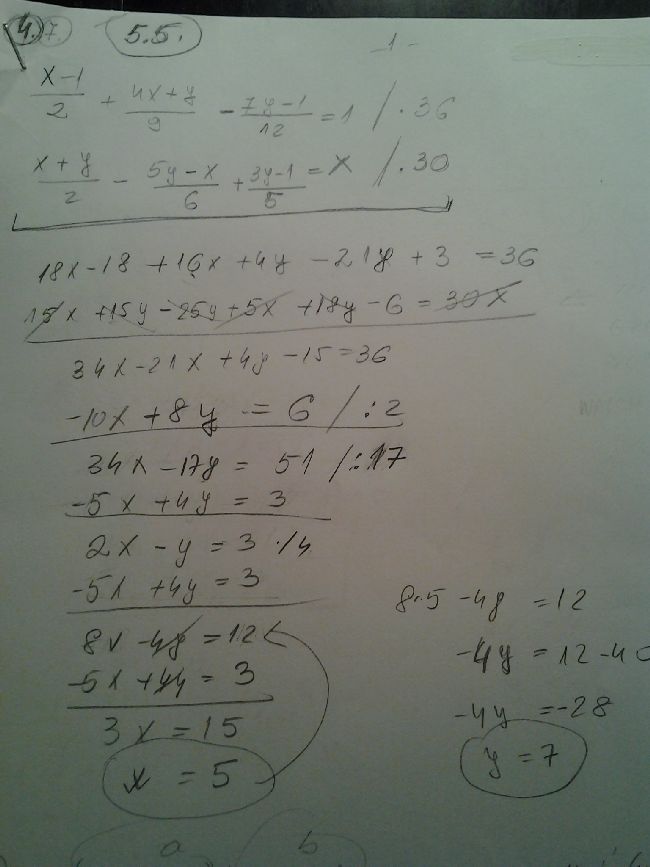 4. 7. 5.5. -1-
x-1/2 + 4x+y/9 - 7y-1/12 = 1 / ·36
x+y/2 - 5y-x/6 + 3y-1/5 = x / ·30
18x-18 +16x +4y -21y +3 =36
15x +15y -25y +5x +18y -6 = 30x
34x-21x +4y -15=36
-10x +8y = 6 / :2
34x -17y = 51 /:17
-5x +4y = 3
2x - y = 3 ·/4
-5x +4y = 3
8x -4y =12
-5x +4y = 3
3x =15
x = 5
8·5 -4y =12
-4y =12-40
-4y =-28
y =7
a b